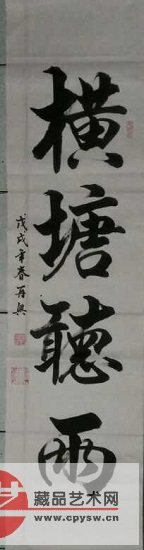 横塘聽雨
戊戌年春再興
藏品艺术网
www.cpysw.cn